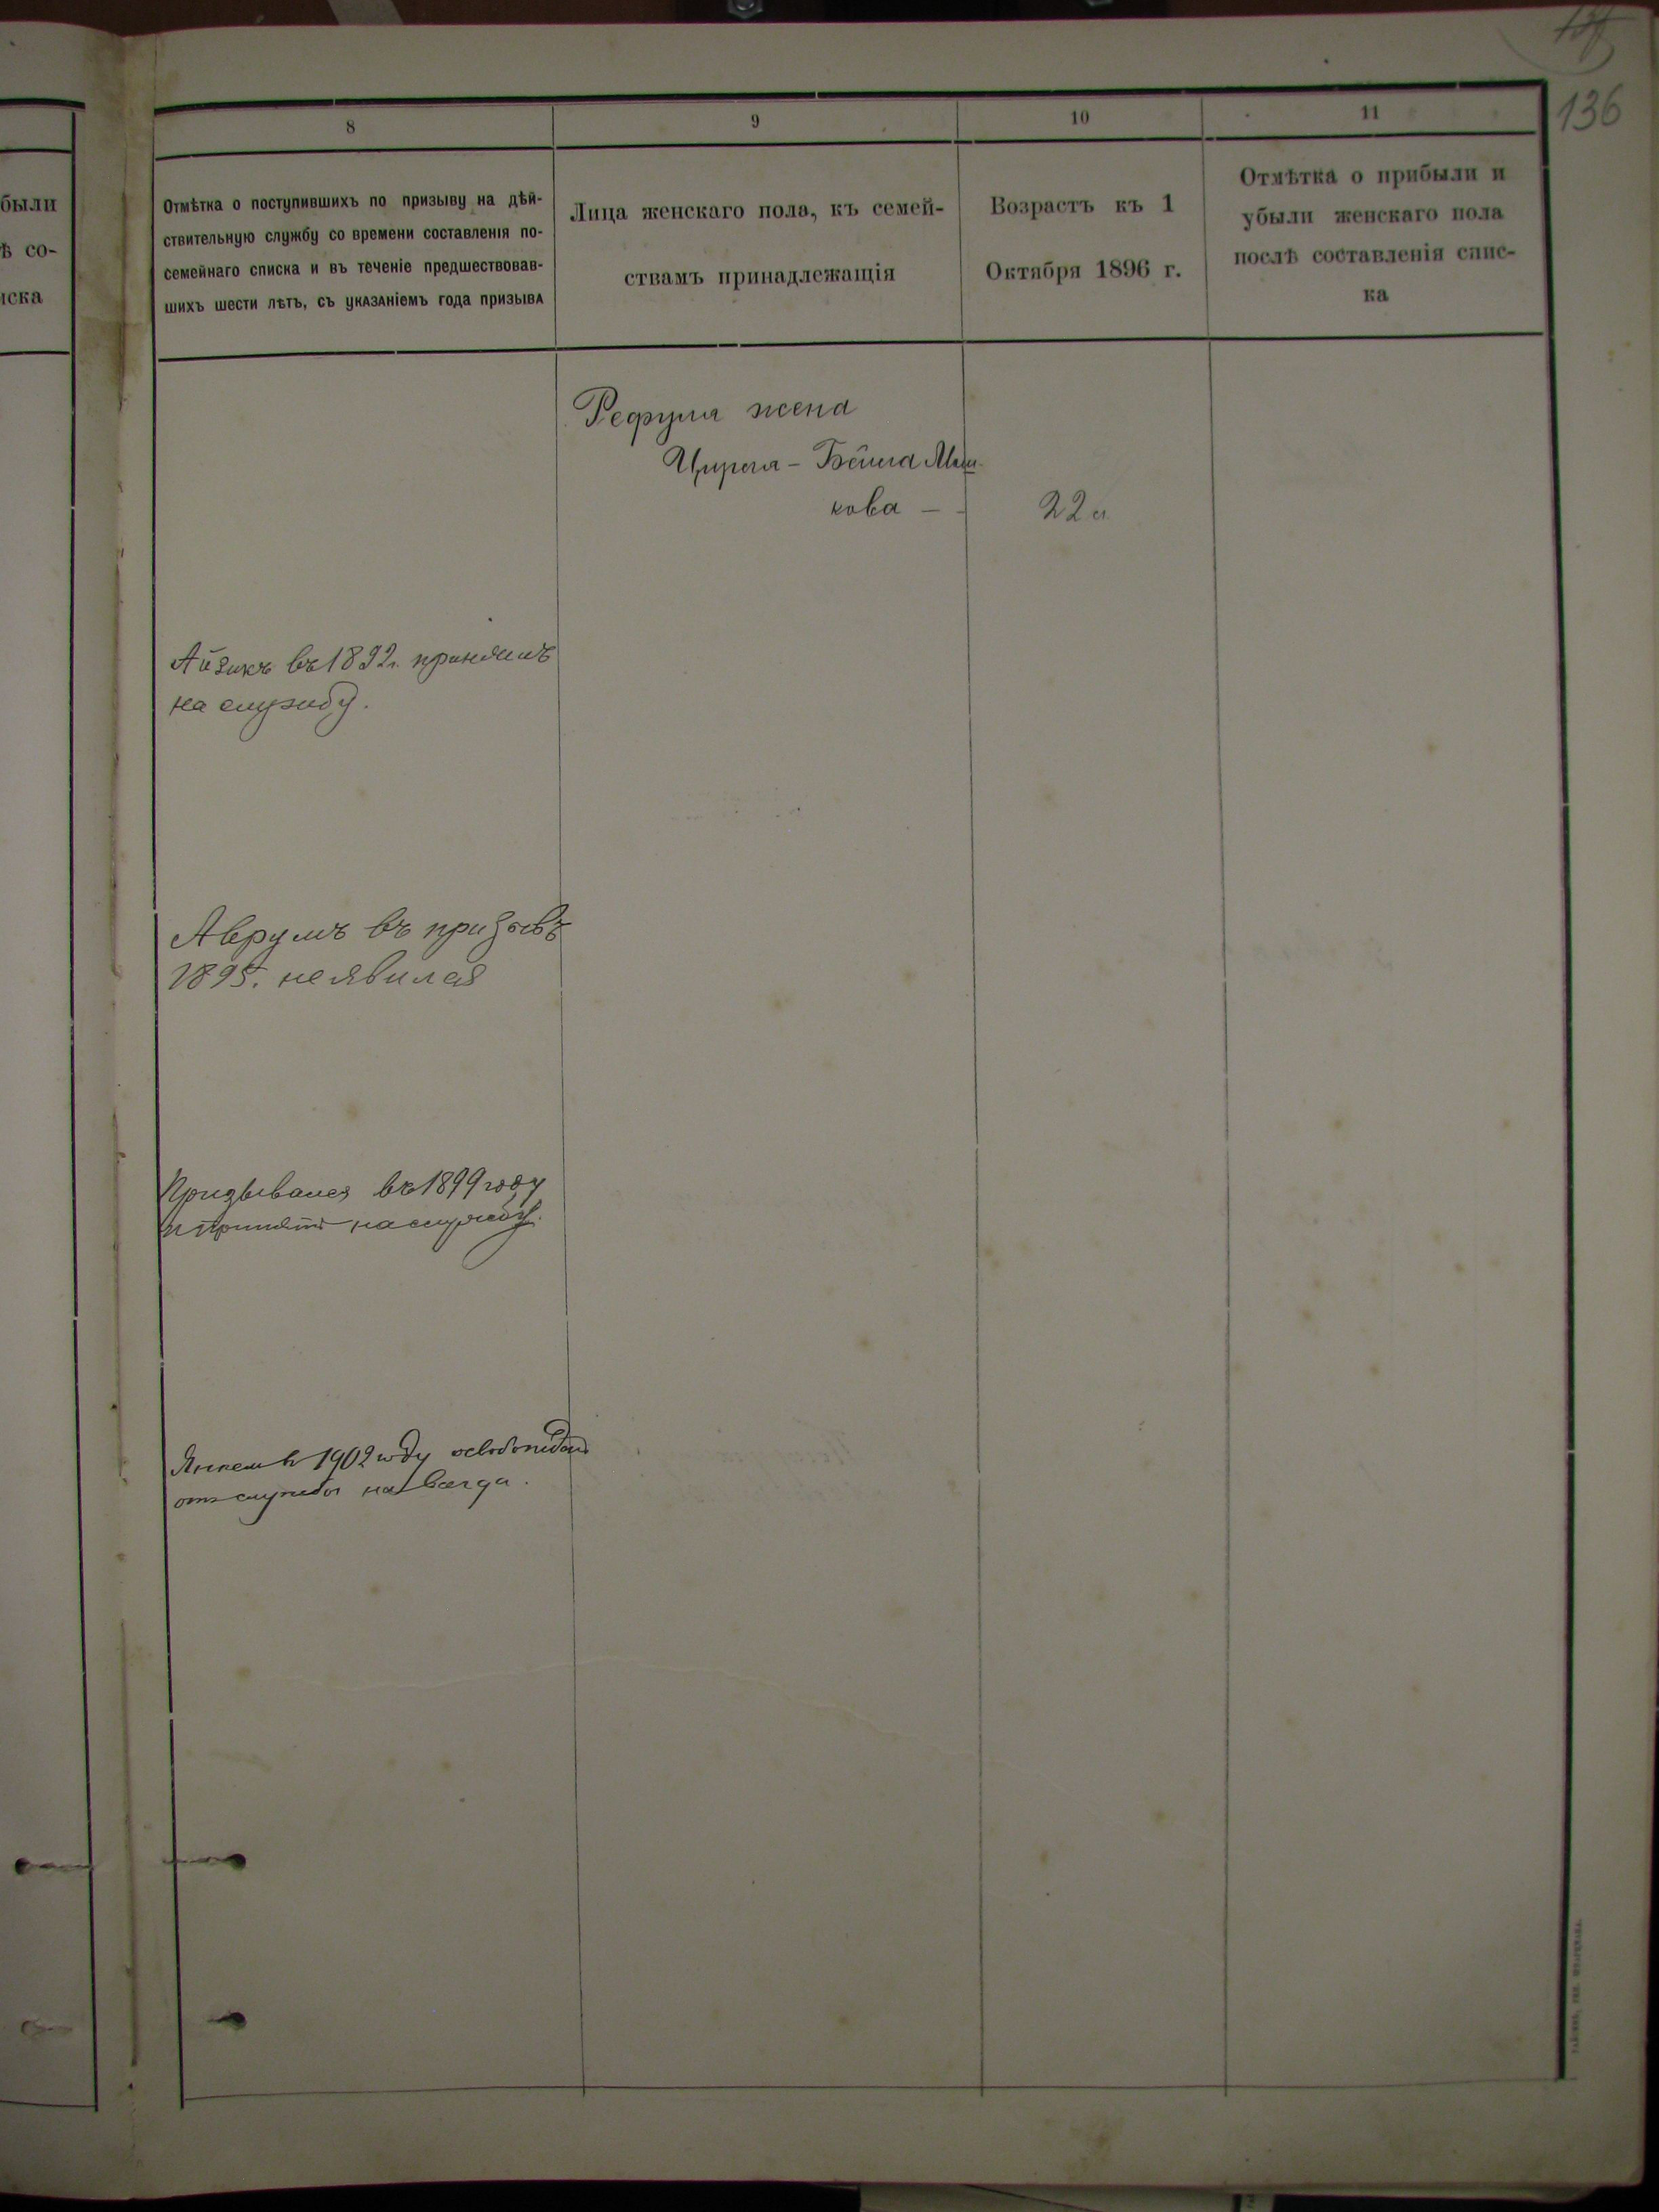 136
были
ѣ со-
иска
8
9
10
11
Отмѣтка о поступившихъ по призыву на дѣй-
ствительную службу со времени составленія по-
семейнаго списка и въ теченіе предшествовав-
шихъ шести лѣтъ, съ указаніемъ года призыва
Лица женскаго пола, къ семей-
ствамъ принадлежащія
Возрастъ къ 1
Октября 1896 г.
Отмѣтка о прибыли и
убыли женскаго пола
послѣ составленія спис-
ка
жена
Бейла
кова —
22
Айзикъ въ 1892г. принятъ
на службу.
Аврумъ въ призывъ
1895. не явился
Призывался въ 1899 году
и принятъ на службу.
1902 году освобожденъ
отъ службы навсегда.